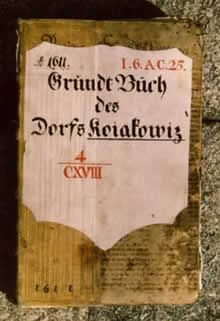 1611. I. 6. A C. 25.
Gründt Büch
des
Dorfs Koiakowiz
4
CXVIII
1 6 1 1